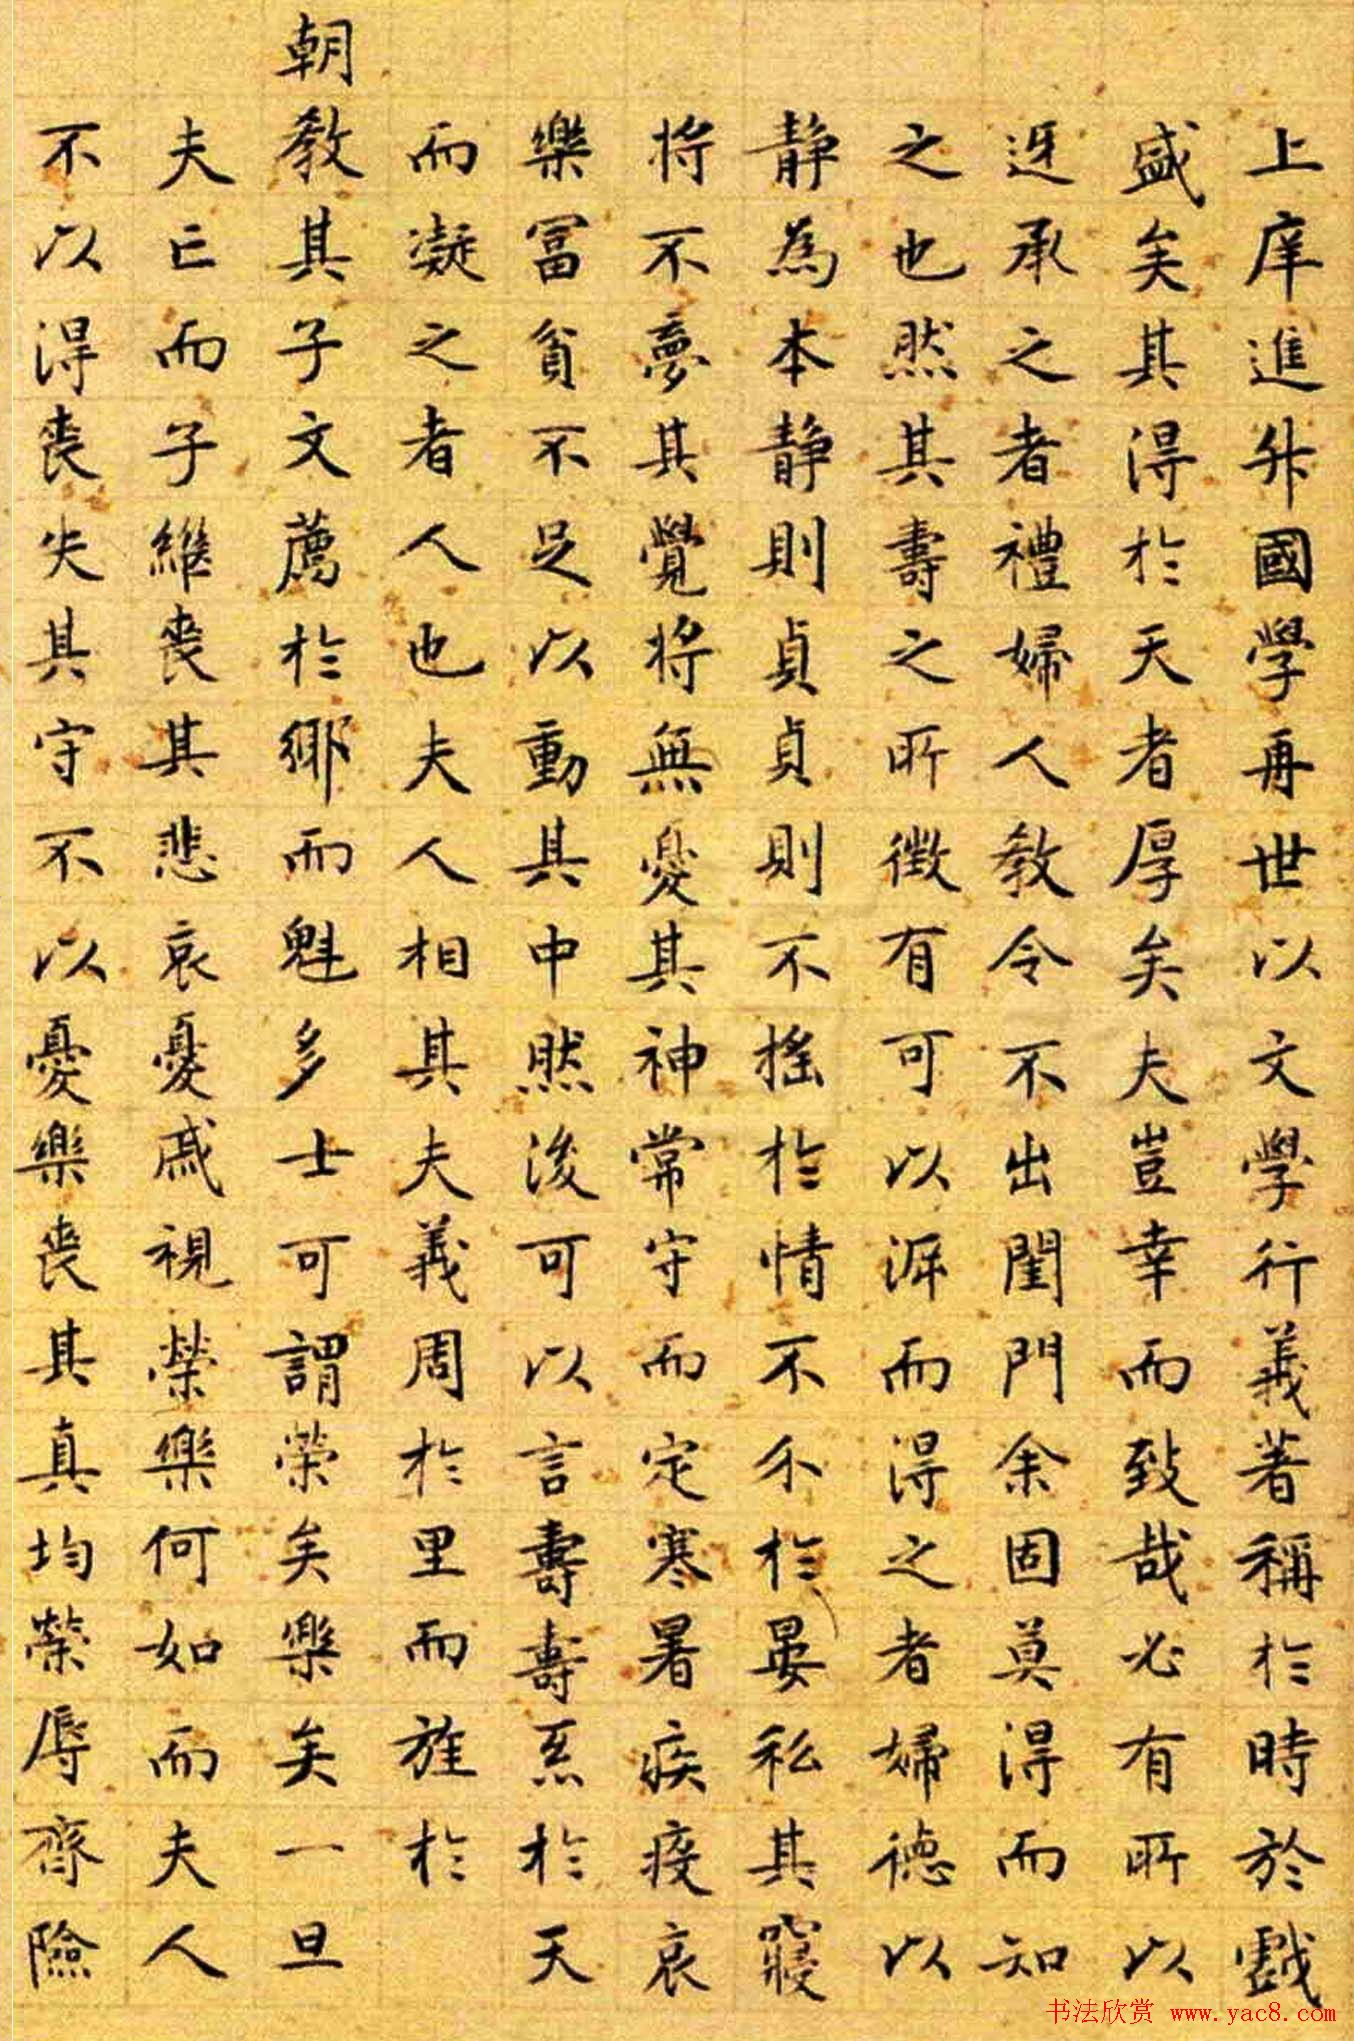 上庠進升國學再世以文學行義著稱於時於戲
盛矣其得於天者厚矣夫豈幸而致哉必有所以
迓承之者禮婦人教令不出閨門余固莫得而知
之也然其壽之所徵有可以泝而得之者婦德以
靜為本靜則貞貞則不搖於情不介於晏私其寢
將不夢其覺將無憂其神常守而定寒暑疾疫哀
樂富貧不足以動其中然後可以言壽壽系於天
而凝之者人也夫人相其夫義周於里而旌於
朝教其子文薦於鄉而魁多士可謂榮矣樂矣一旦
夫亡而子繼喪其悲哀憂戚視榮樂何如而夫人
不以得喪失其守不以憂樂喪其真均榮辱齊險
书法欣赏 www.yac8.com